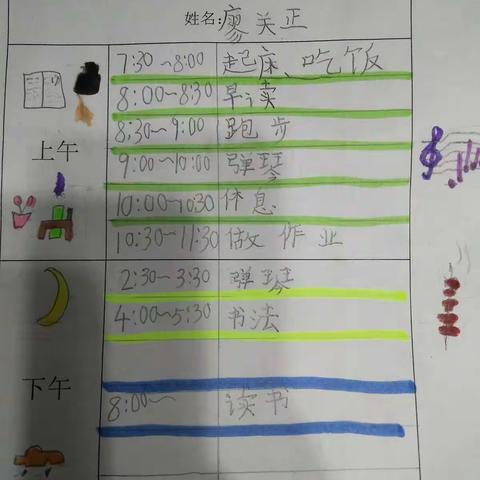 姓名:廖关正
7:30~8:00 起床、吃饭
8:00~8:30 早读
8:30~9:00 跑步
上午
9:00~10:00 弹琴
10:00~10:30 休息
10:30~11:30 做作业
2:30~3:30 弹琴
4:00~5:30 书法
下午
8:00~ 读书